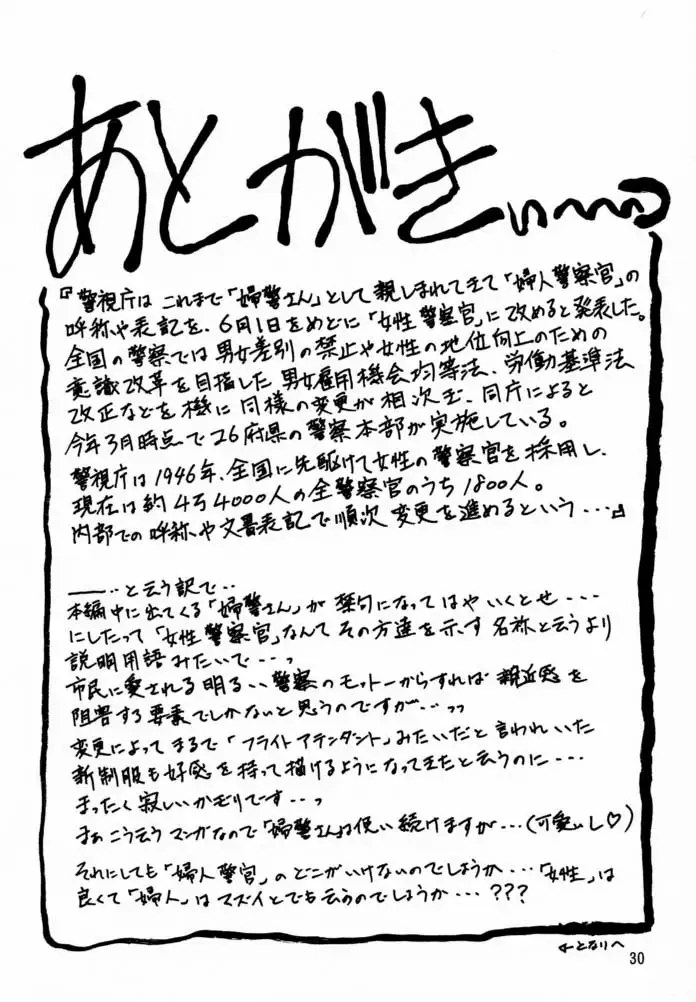 あとがきぃ〜〜っ
『警視庁は これまで「婦警さん」として親しまれてきて「婦人警察官」の
呼称や表記を、6月1日をめどに「女性警察官」に改めると発表した。
全国の警察では男女差別の禁止や女性の地位向上のための
意識改革を目指した男女雇用機会均等法、労働基準法
改正などを機に同様の変更が相次ぎ、同庁によると
今年3月時点で26府県の警察本部が実施している。
警視庁は1946年、全国に先駆けて女性の警察官を採用し、
現在は約4万4000人の全警察官のうち1800人。
内部での呼称や文書表記で順次変更を進めるという・・・』
――・・と云う訳で・・
本編中に出てくる「婦警さん」が禁句になってはやいくとせ・・・
にしたって「女性警察官」なんてその方達を示す名称と云うより
説明用語みたいで・・・っ
市民に愛される明るい警察のモットーからすれば親近感を
阻害する要素でしかないと思うのですが・・・っっ
変更によってまるで「フライトアテンダント」みたいだと言われいた
新制服も好感を持って描けるようになってきたと云うのに・・・
まったく寂しいかぎりです・・・っ
まぁこう云うマンガなので「婦警さん」は使い続けますが・・・(可愛いし♡)
それにしても「婦人警官」のどこがいけないのでしょうか・・・「女性」は
良くて「婦人」はマズイとでも云うのでしょうか・・・???
←となりへ
30